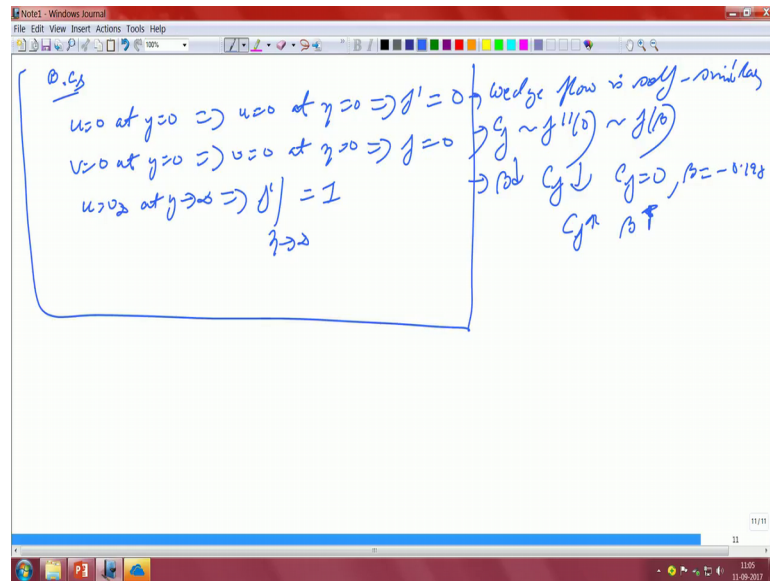 Note1 - Windows Journal
File Edit View Insert Actions Tools Help
100%
B.Cs
u=0 at y=0 => u=0 at η=0 => f' = 0
v=0 at y=0 => v=0 at η=0 => f = 0
u=U∞ at y→∞ => f'| = 1
η→∞
→ wedge flow is self-similar
→ Cf ~ f''(0) ~ f(β)
→ β↓ Cf↓ Cf=0, β=-0.198
Cf↑ β↑
11/11
11
11:05
11-09-2017